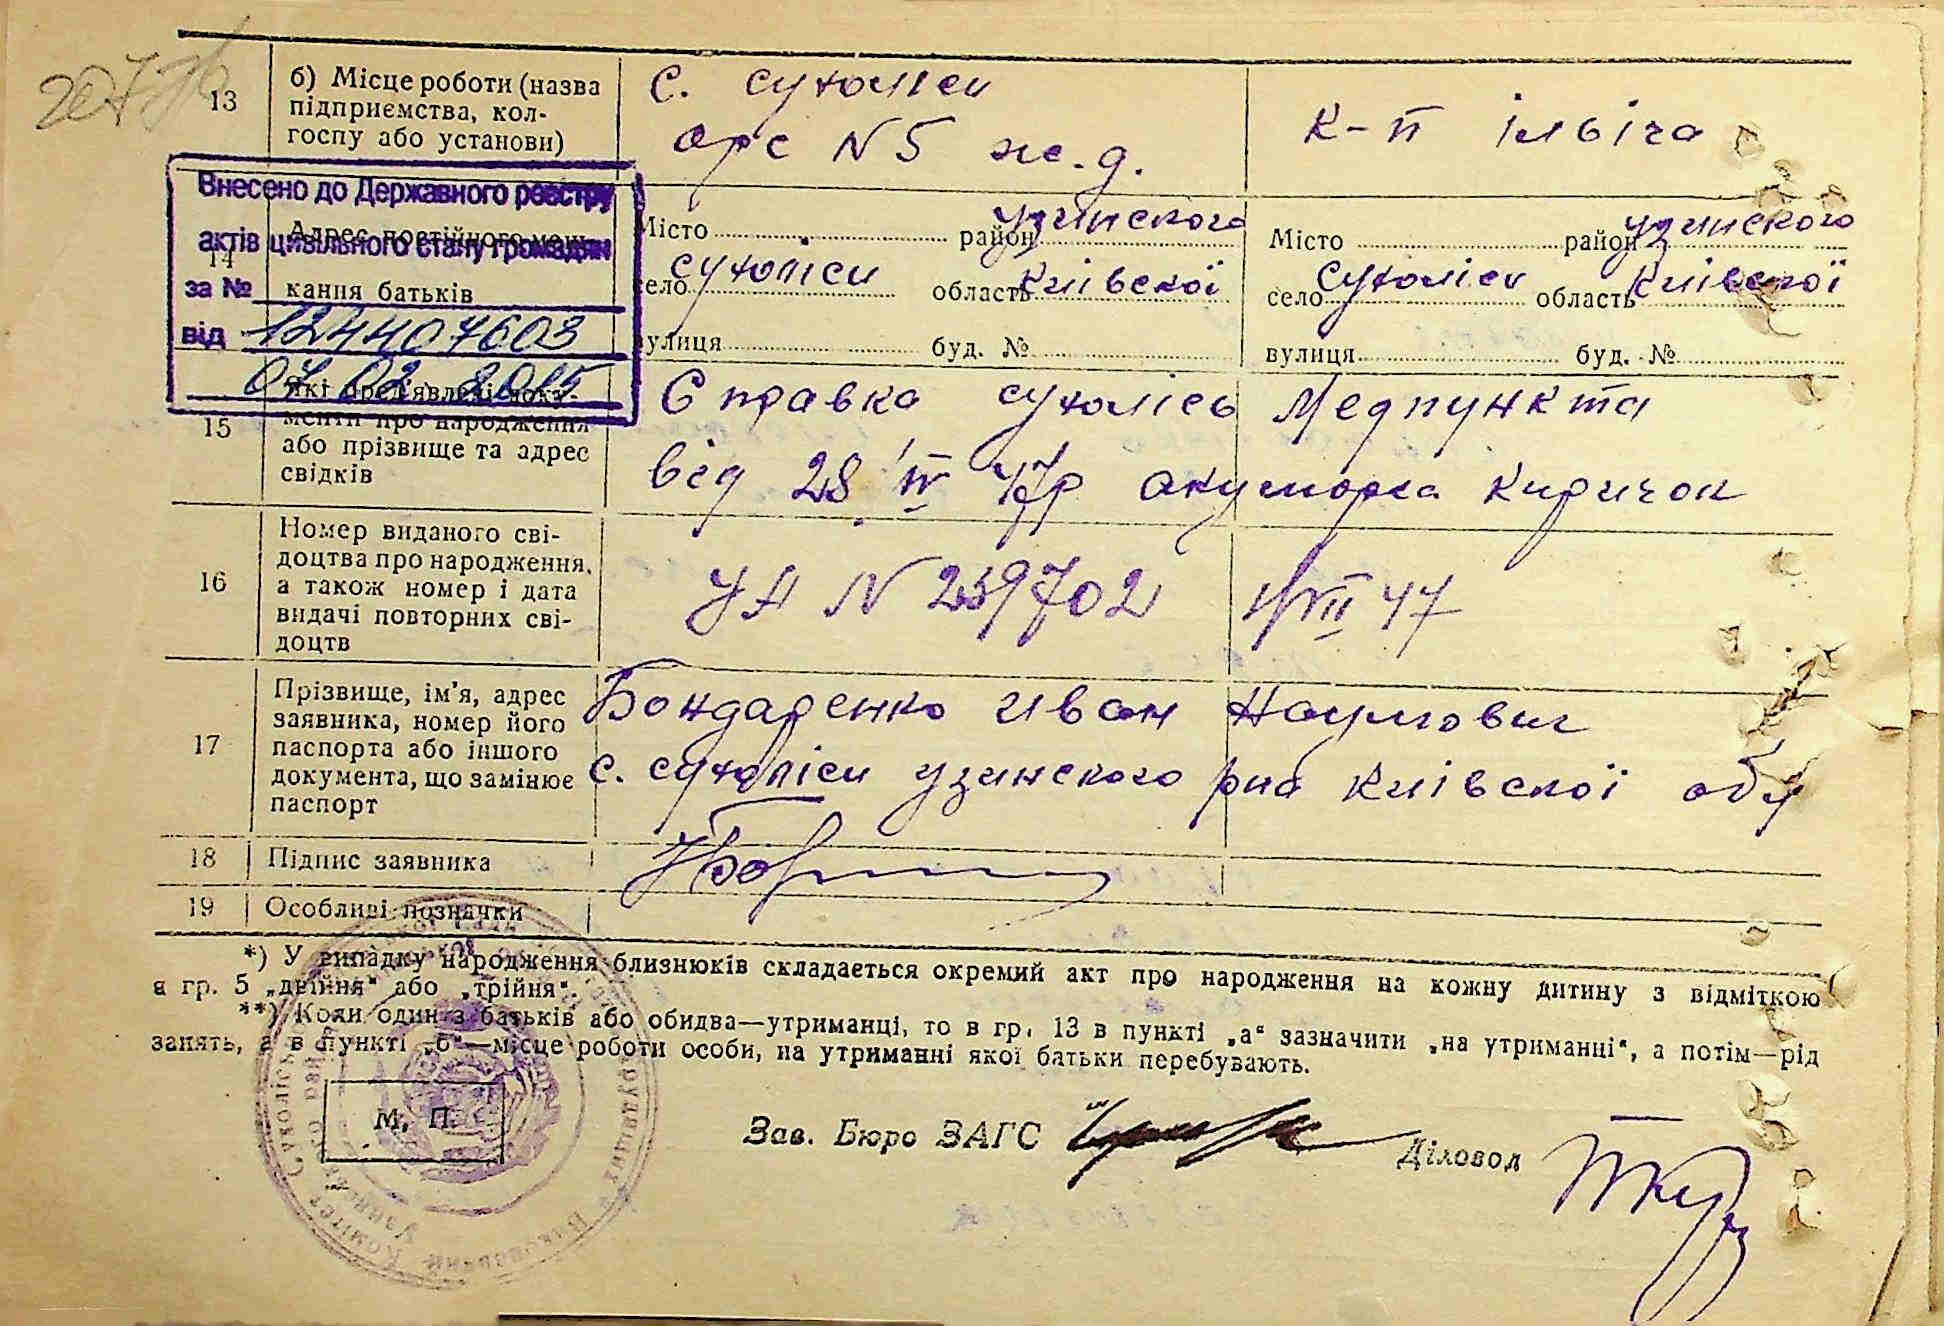 13
б) Місце роботи (назва
підприємства, кол-
госпу або установи)
с. Сухоліси
орс N 5 ж.д.
к-п Ілліча
Внесено до Державного реєстру
актів цивільного стану громадян
за № 
від 124407603
07 02 2015
14
Адрес постійного меш-
кання батьків
Місто район Узинского
село Сухоліси область Київскої
вулиця буд. №
Місто район Узинского
село Сухоліси область Київскої
вулиця буд. №
15
які пред'явлені доку-
менти про народження
або прізвище та адрес
свідків
Справка Сухоліс Медпункта
від 28 IV 47р акушорка Киричок
16
Номер виданого сві-
доцтва про народження,
а також номер і дата
видачі повторних сві-
доцтв
УА N 239702 VII 47
17
Прізвище, ім'я, адрес
заявника, номер його
паспорта або іншого
документа, що замінює
паспорт
Бондаренко Иван Наумович
с. Сухоліси Узинского р-на Київскої обл
18
Підпис заявника
19
Особливі позначки
*) У випадку народження близнюків складається окремий акт про народження на кожну дитину з відміткою
в гр. 5 „двійня“ або „трійня“.
**) Коли один з батьків або обидва—утриманці, то в гр. 13 в пункті „а“ зазначити „на утриманні“, а потім—рід
занять, а в пункті „б“—місце роботи особи, на утриманні якої батьки перебувають.
М. П.
Зав. Бюро ЗАГС
Діловод